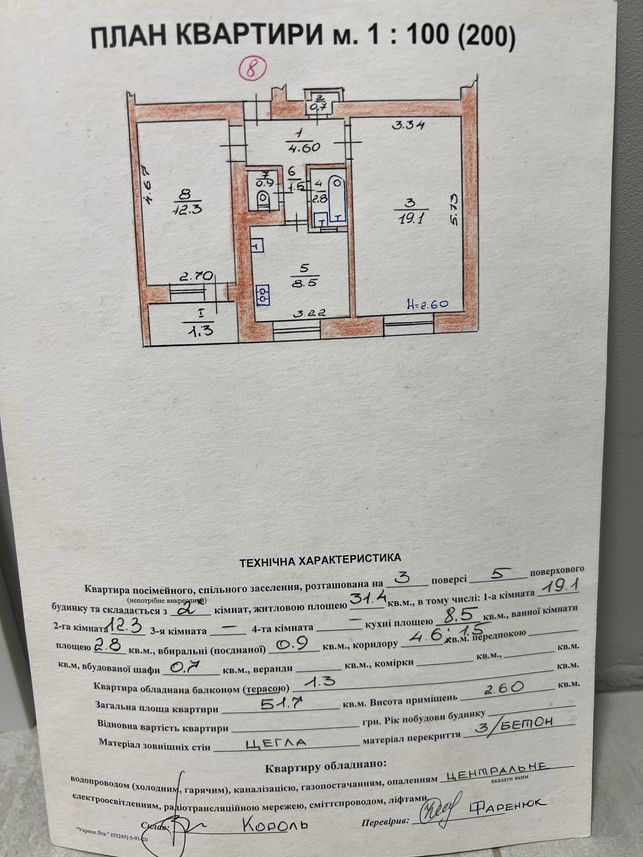 ПЛАН КВАРТИРИ м. 1 : 100 (200)
8
2
0.7
1
4.60
3.34
4.67
8
12.3
7
0.9
6
1.5
4
2.8
3
19.1
5.73
2.70
5
8.5
I
1.3
3.22
H=2.60
ТЕХНІЧНА ХАРАКТЕРИСТИКА
Квартира посімейного, спільного заселення, розташована на 3 поверсі 5 поверхового
(непотрібне викреслити)
будинку та складається з 2х кімнат, житловою площею 31.4 кв.м., в тому числі: 1-а кімната 19.1
2-га кімната 12.3 3-я кімната — 4-та кімната — кухні площею 8.5 кв.м., ванної кімнати
площею 2.8 кв.м., вбиральні (поєднаної) 0.9 кв.м., коридору 4.6; 1.5 кв.м. передпокою
кв.м, вбудованої шафи 0.7 кв.м., веранди кв.м., комірки кв.м., кв.м.
Квартира обладнана балконом (терасою) 1.3 кв.м.
Загальна площа квартири 51.7 кв.м. Висота приміщень 2.60 кв.м.
Відновна вартість квартири грн. Рік побудови будинку
Матеріал зовнішніх стін ЦЕГЛА матеріал перекриття З/БЕТОН
Квартиру обладнано:
водопроводом (холодним, гарячим), каналізацією, газопостачанням, опаленням ЦЕНТРАЛЬНЕ
вказати яким
електроосвітленням, радіотрансляційною мережею, сміттєпроводом, ліфтами.
Склав: КОРОЛЬ Перевірив: ФАРЕНЮК
(03245) 5-91-20